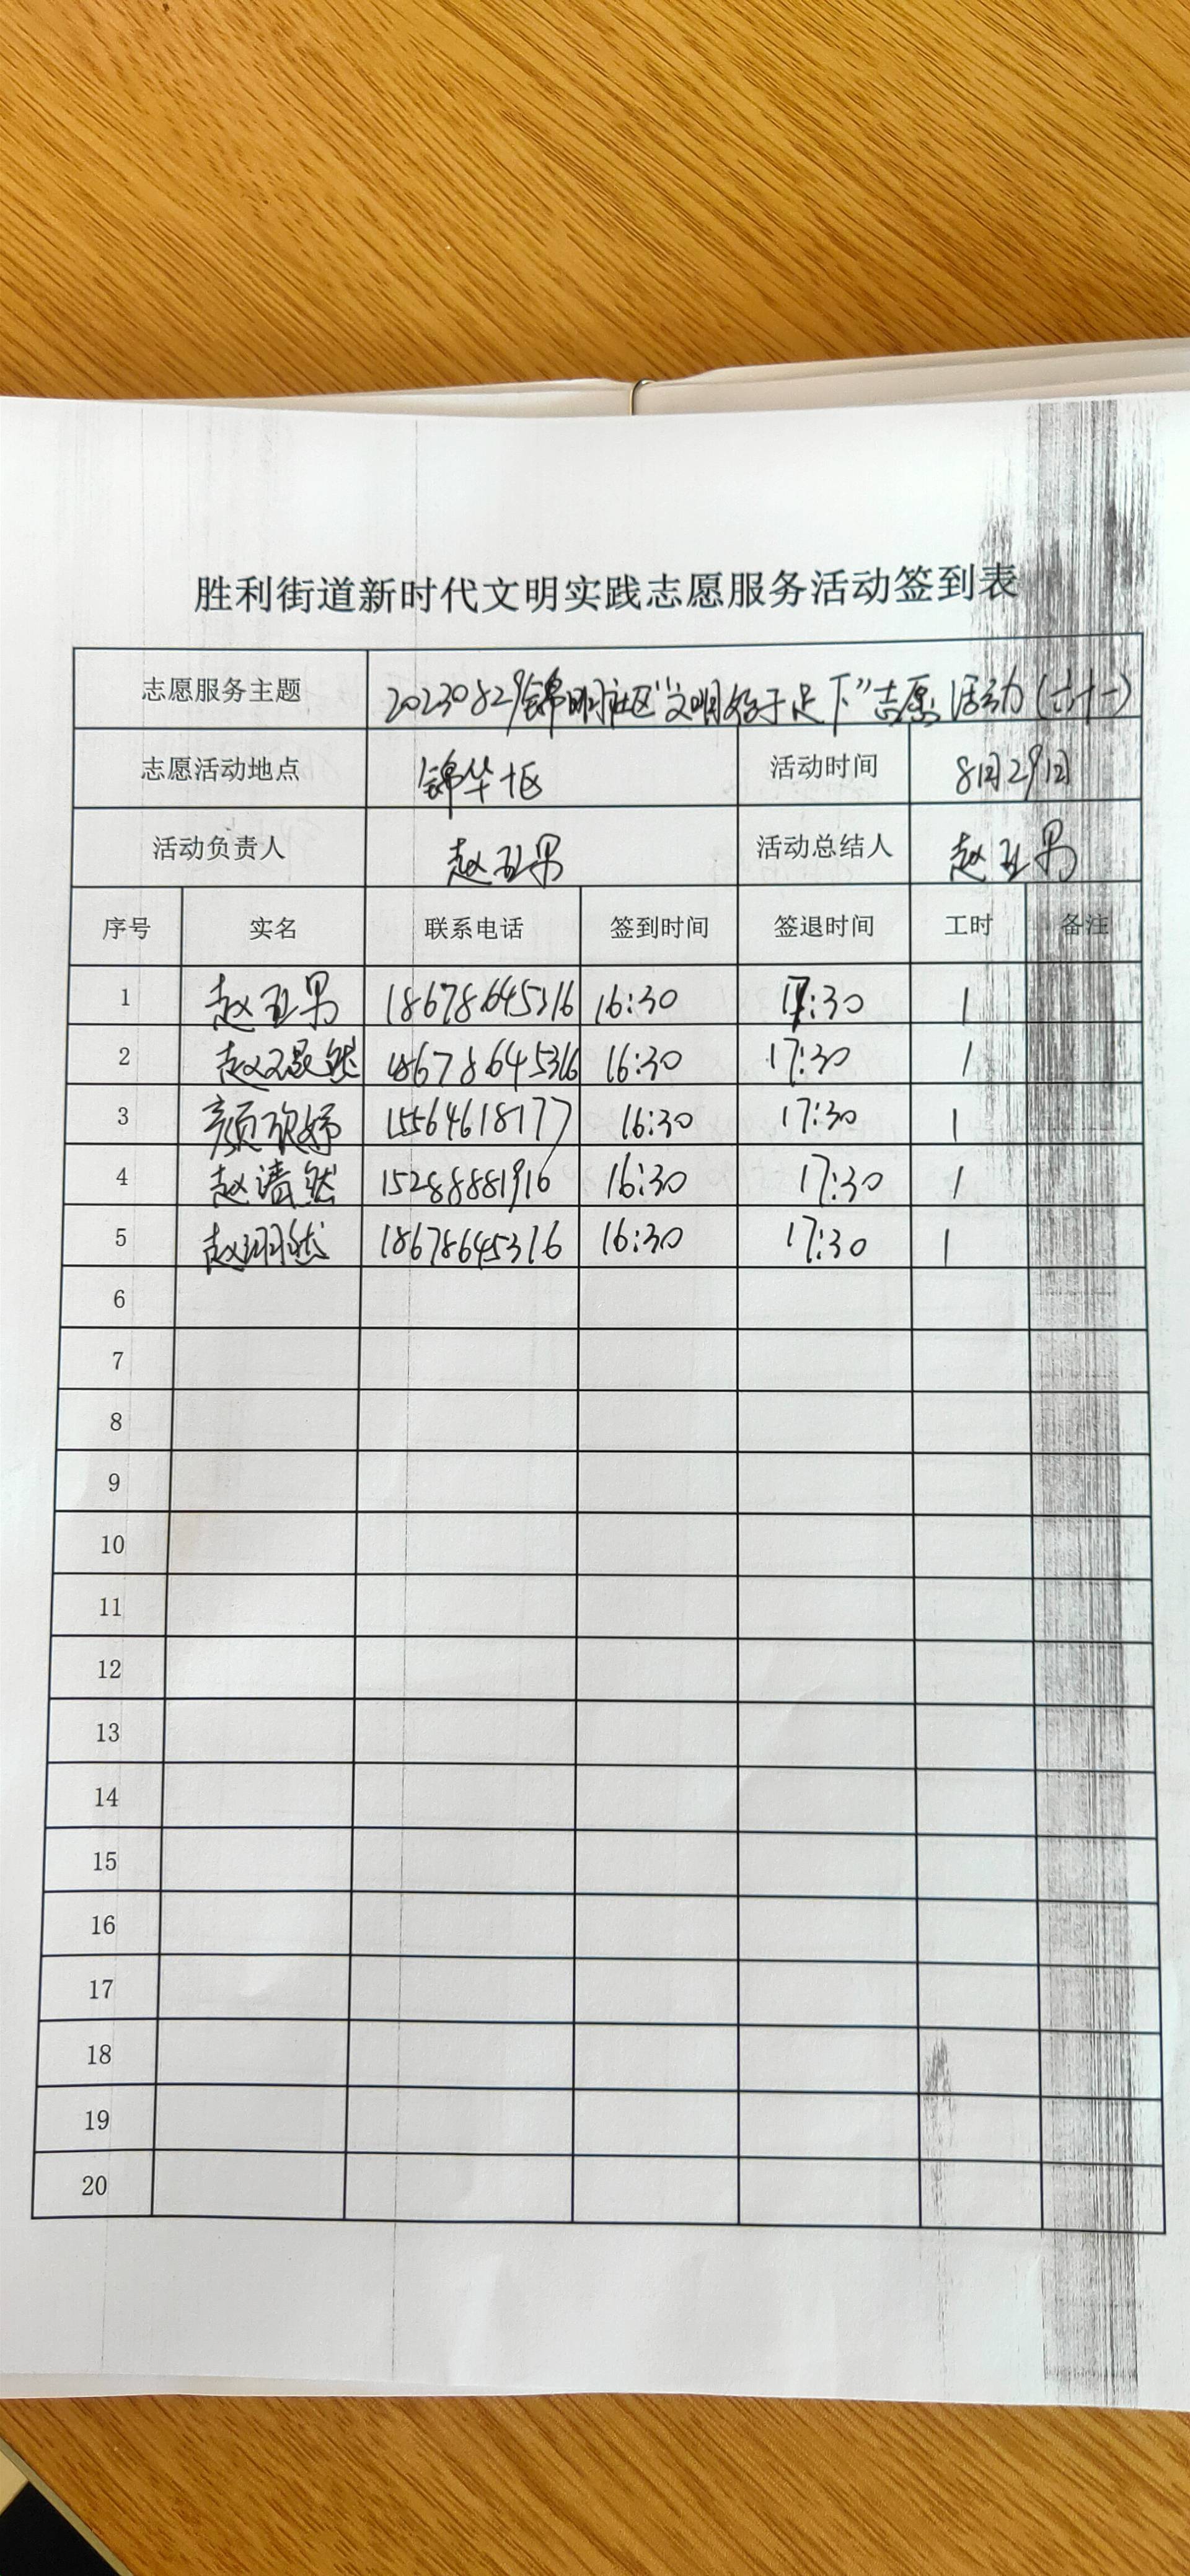 胜利街道新时代文明实践志愿服务活动签到表
志愿服务主题 20230829锦明社区“文明始于足下”志愿活动(六十一)
志愿活动地点 锦华十区 活动时间 8月29日
活动负责人 赵玉男 活动总结人 赵玉男
序号 实名 联系电话 签到时间 签退时间 工时 备注
1 赵玉男 18678645316 16:30 17:30 1
2 赵 然 18678645316 16:30 17:30 1
3 颜 15564618177 16:30 17:30 1
4 赵清然 15288881916 16:30 17:30 1
5 赵翊然 18678645316 16:30 17:30 1
6
7
8
9
10
11
12
13
14
15
16
17
18
19
20